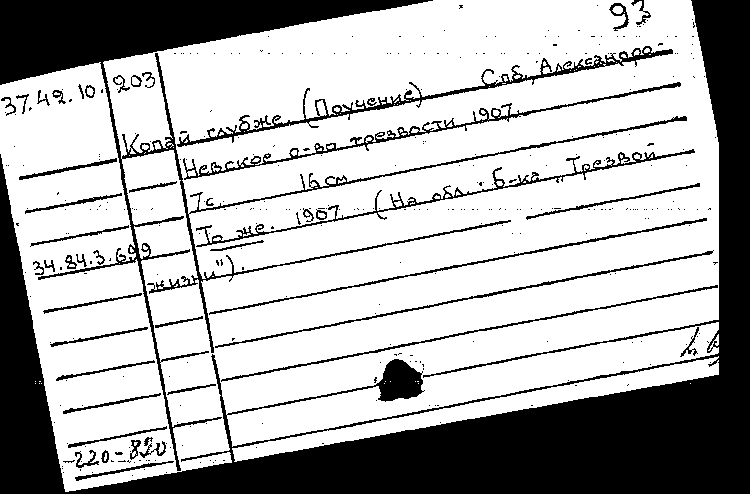 93
37.42.10.203
Копай глубже. (Поучение) Спб., Александро-
Невское о-во трезвости, 1907.
7с. 16см
34.84.3.699 То же. 1907 (На обл.: Б-ка „Трезвой
жизни").
-220.-820